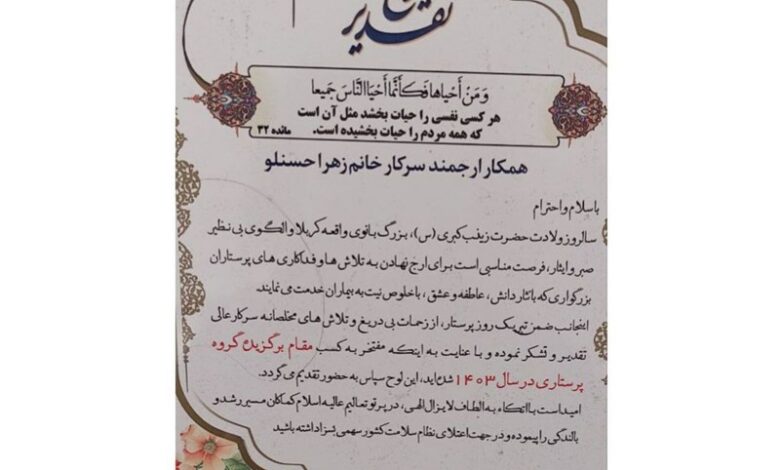 تقدیر
وَ مَنْ أَحْياها فَكَأَنَّما أَحْيَا النَّاسَ جَمِيعا
هر کسی نفسی را حیات بخشد مثل آن است
که همه مردم را حیات بخشیده است. مائده ۳۲
همکار ارجمند سرکار خانم زهرا حسنلو
با سلام و احترام
سالروز ولادت حضرت زینب کبری (س)، بزرگ بانوی واقعه کربلا و الگوی بی نظیر
صبر و ایثار، فرصت مناسبی است برای ارج نهادن به تلاش ها و فداکاری های پرستاران
بزرگواری که با نثار دانش، عاطفه و عشق، با خلوص نیت به بیماران خدمت می نمایند.
اینجانب ضمن تبریک روز پرستار، از زحمات بی دریغ و تلاش های مخلصانه سرکار عالی
تقدیر و تشکر نموده و با عنایت به اینکه مفتخر به کسب مقام برگزیده گروه
پرستاری در سال ۱۴۰۳ شده اید، این لوح سپاس به حضور تقدیم می گردد.
امید است با اتکاء به الطاف لایزال الهی، در پرتو تعالیم عالیه اسلام کماکان مسیر رشد و
بالندگی را پیموده و در جهت اعتلای نظام سلامت کشور سهمی بسزا داشته باشید